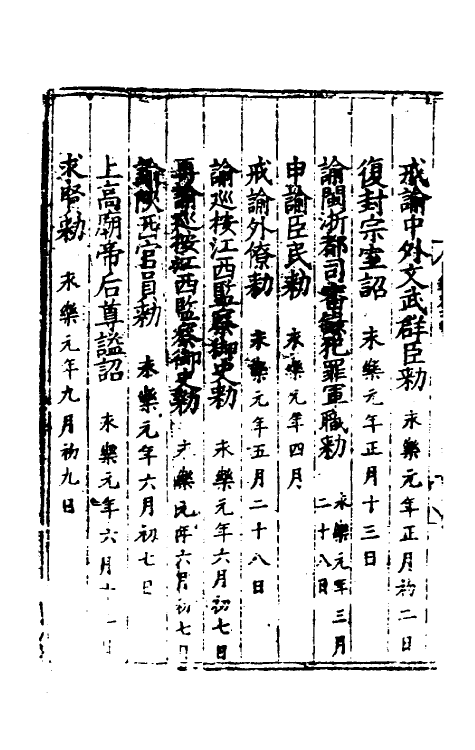 戒諭中外文武群臣勅 永樂元年正月初二日
復封宗室詔 永樂元年正月十三日
諭閩浙都司審錄犯罪軍職勅 永樂元年三月二十八日
申諭臣民勅 永樂元年四月
戒諭外僚勅 永樂元年五月二十八日
諭巡按江西監察御史勅 永樂元年六月初七日
再諭巡按江西監察御史勅 永樂元年六月初七日
諭陝西官員勅 永樂元年六月初七日
上高廟帝后尊謚詔 永樂元年六月十一日
求賢勅 永樂元年九月初九日